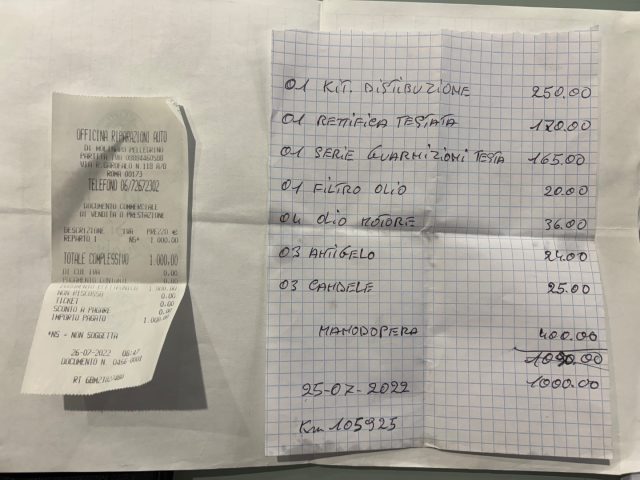 OFFICINA RIPARAZIONI AUTO
DI MOLINARO PELLEGRINO
PARTITA IVA 08084460588
VIA R.GAROFALO N.118 A/B
ROMA 00173
TELEFONO 06/72672302
DOCUMENTO COMMERCIALE
DI VENDITA O PRESTAZIONE
DESCRIZIONE IVA PREZZO €
REPARTO 1 NS* 1 000.00
TOTALE COMPLESSIVO 1 000.00
DI CUI IVA 0.00
PAGAMENTO CONTANTE 0.00
PAGAMENTO ELETTRONICO 1 000.00
NON RISCOSSO 0.00
TICKET 0.00
SCONTO A PAGARE 0.00
IMPORTO PAGATO 1 000.00
*NS - NON SOGGETTA
26-07-2022 08:47
DOCUMENTO N. 0466-0001
RT
01 KIT. DISTIBUZIONE 250.00
01 RETTIFICA TESTATA 170.00
01 SERIE GUARNIZIONI TESTA 165.00
01 FILTRO OLIO 20.00
04 OLIO MOTORE 36.00
03 ANTIGELO 24.00
03 CANDELE 25.00
MANODOPERA 400.00
1090.00
25-07-2022 1000.00
Km 105925